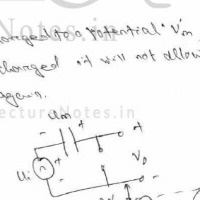 charged to a potential 'Vm
charged it will not allow
again.
LectureNotes.in
Vm
+
+
A
Vi
V0